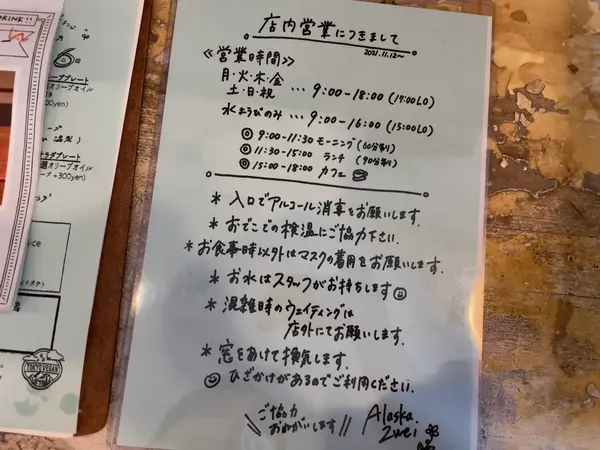 店内営業につきまして
2021.11.12〜
≪営業時間≫
月・火・木・金
土・日・祝 … 9:00-18:00 (17:00LO)
水ようびのみ … 9:00-16:00 (15:00LO)
◎ 9:00-11:30 モーニング (60分制)
◎ 11:30-15:00 ランチ (90分制)
◎ 15:00-18:00 カフェ
* 入口でアルコール消毒をお願いします。
* おでこでの検温にご協力下さい。
* お食事時以外はマスクの着用をお願いします。
* お水はスタッフがお持ちします
* 混雑時のウェイティングは
店外にてお願いします。
* 窓をあけて換気します。
ひざかけがあるのでご利用ください。
\\ ご協力
おねがいします //
Alaska
zwei
DRINK!!
プレート
オリーブオイル
300yen)
プレート
選オリーブオイル
+300yen)
TOKYO VEGAN